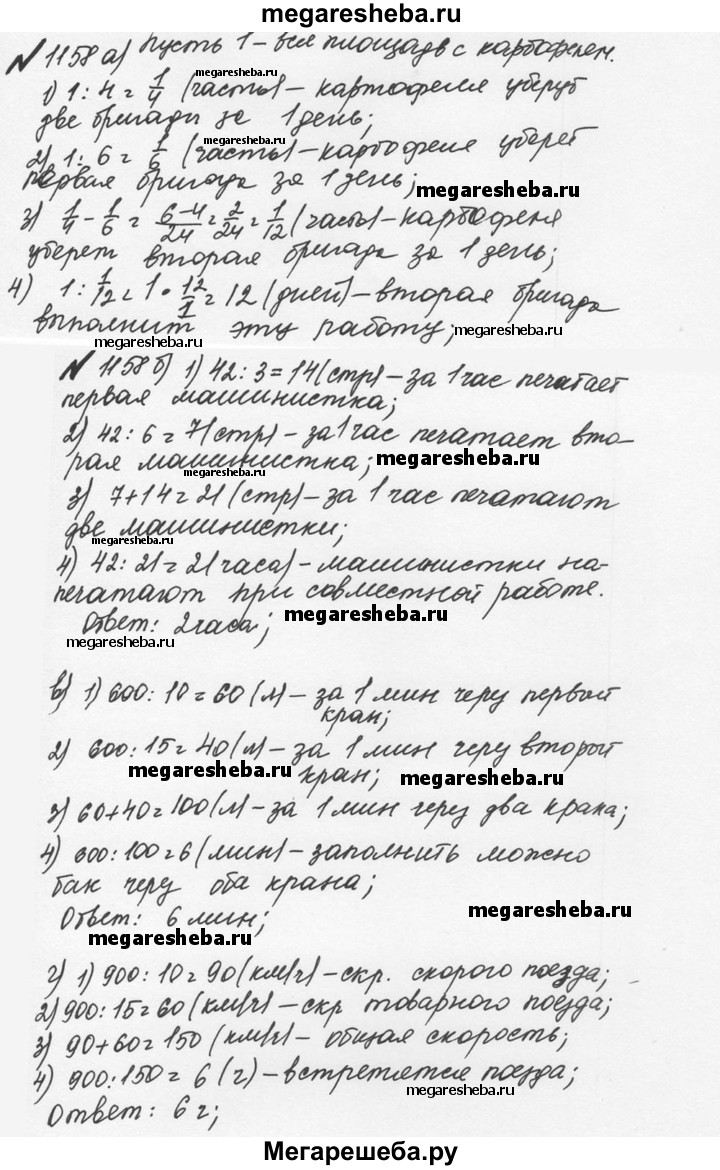 megaresheba.ru
№ 1158 а) Пусть 1 – вся площадь с картофелем.
megaresheba.ru
1) 1 : 4 = 1/4 (часть) – картофеля уберут
две бригады за 1 день;
megaresheba.ru
2) 1 : 6 = 1/6 (часть) – картофеля уберет
первая бригада за 1 день;
megaresheba.ru
3) 1/4 - 1/6 = 6-4/24 = 2/24 = 1/12 (часть) – картофеля
уберет вторая бригада за 1 день;
4) 1 : 1/12 = 1 • 12/1 = 12 (дней) – вторая бригада
выполнит эту работу;
megaresheba.ru
megaresheba.ru
№ 1158 б) 1) 42 : 3 = 14 (стр) – за 1 час печатает
первая машинистка;
2) 42 : 6 = 7 (стр) – за 1 час печатает вто-
рая машинистка;
megaresheba.ru
megaresheba.ru
3) 7 + 14 = 21 (стр) – за 1 час печатают
две машинистки;
megaresheba.ru
4) 42 : 21 = 2 (часа) – машинистки на-
печатают при совместной работе.
Ответ: 2 часа;
megaresheba.ru
megaresheba.ru
в) 1) 600 : 10 = 60 (л) – за 1 мин черу первой
кран;
2) 600 : 15 = 40 (л) – за 1 мин черу второй
кран;
megaresheba.ru
megaresheba.ru
3) 60 + 40 = 100 (л) – за 1 мин через два крана;
4) 600 : 100 = 6 (мин) – заполнить можно
бак черу оба крана;
Ответ: 6 мин;
megaresheba.ru
megaresheba.ru
г) 1) 900 : 10 = 90 (км/ч) – скр. скорого поезда;
2) 900 : 15 = 60 (км/ч) – скр товарного поезда;
3) 90 + 60 = 150 (км/ч) – общая скорость;
4) 900 : 150 = 6 (ч) – встретятся поезда;
megaresheba.ru
Ответ: 6 ч;
Мегарешеба.ру